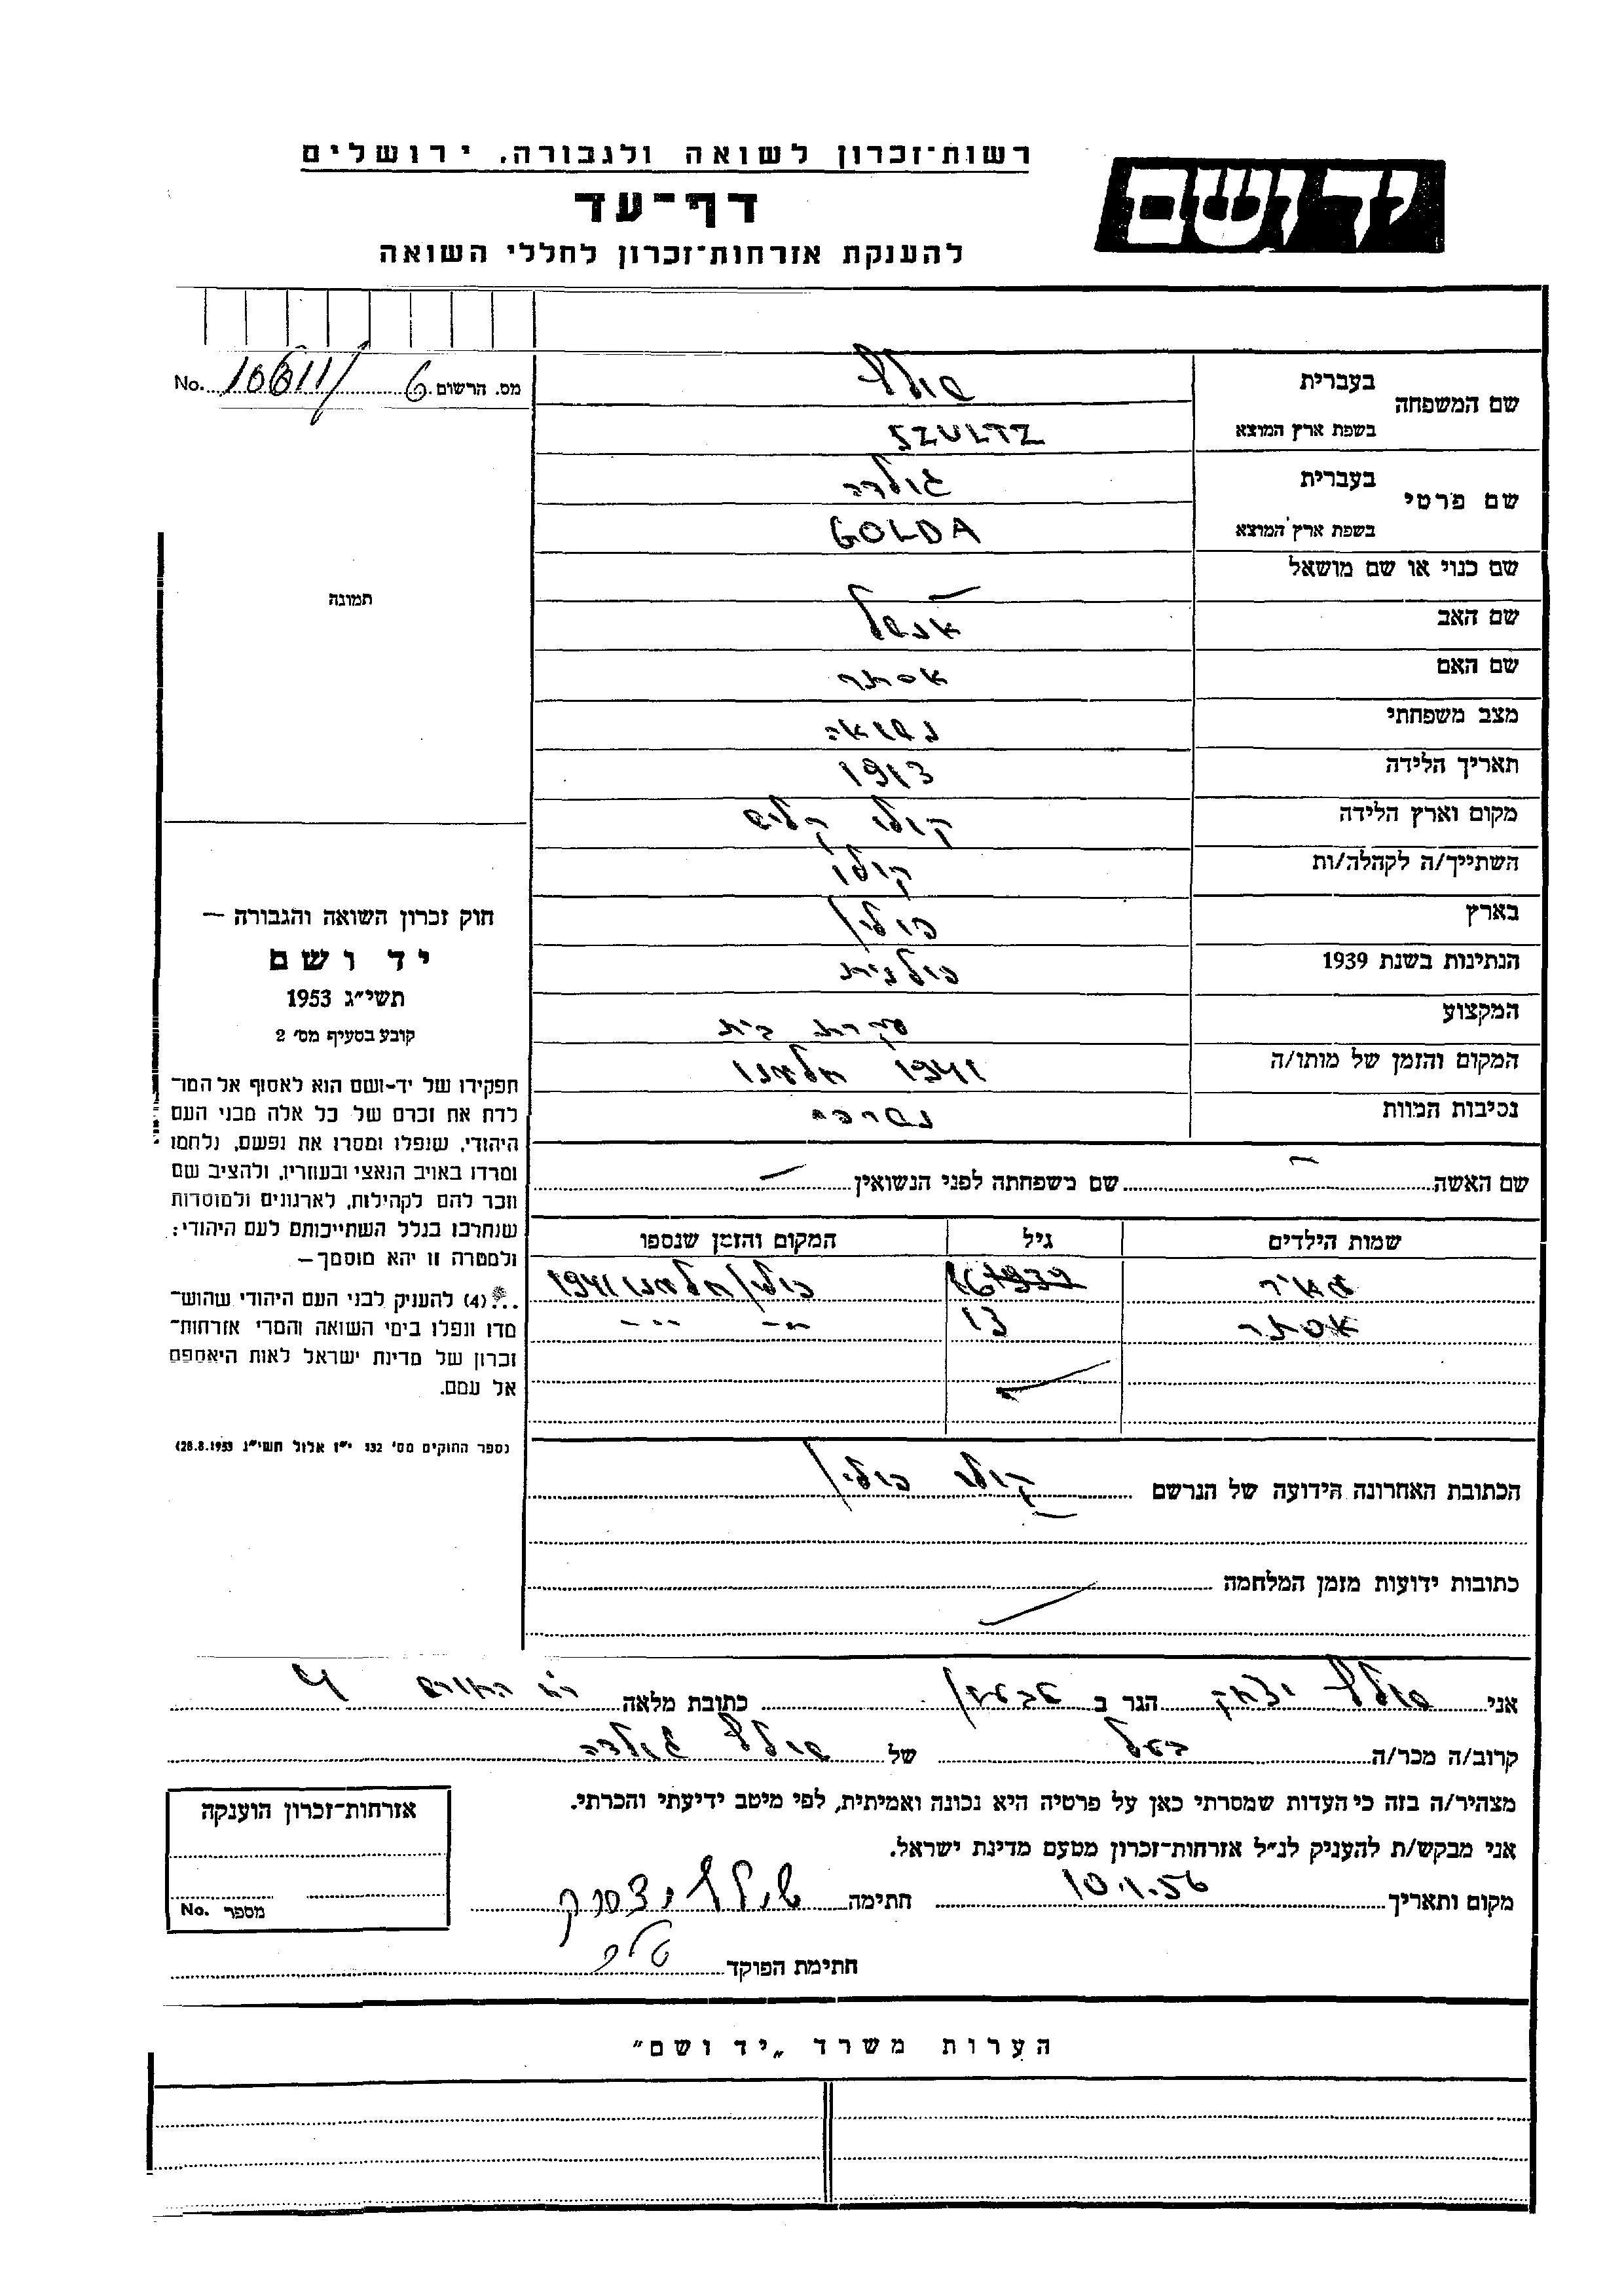 רשות־זכרון לשואה ולגבורה, ירושלים
יד ושם
דף־עד
להענקת אזרחות־זכרון לחללי השואה
מס. הרשום 6 No.
שם המשפחה
בעברית שולץ
בשפת ארץ המוצא SZULTZ
שם פרטי
בעברית גולדה
בשפת ארץ המוצא GOLDA
שם כנוי או שם מושאל —
שם האב אנשל
שם האם אסתר
מצב משפחתי נשואה
תאריך הלידה 1913
מקום וארץ הלידה קולו קליש
השתייך/ה לקהלה/ות קולו
בארץ פולין
הנתינות בשנת 1939 פולנית
המקצוע עקרת בית
המקום והזמן של מותו/ה 1941 חלמנו
נסיבות המוות נשרפה
שם האשה — שם משפחתה לפני הנשואין —
שמות הילדים גיל המקום והזמן שנספו
מאיר 16 פולין חלמנו 1941
אסתר 13 -"- -"-
הכתובת האחרונה הידועה של הנרשם קולו פולין
כתובות ידועות מזמן המלחמה
תמונה
חוק זכרון השואה והגבורה —
יד ושם
תשי״ג 1953
קובע בסעיף מס׳ 2
תפקידו של יד-ושם הוא לאסוף אל המו־
לדת את זכרם של כל אלה מבני העם
היהודי, שנפלו ומסרו את נפשם, נלחמו
ומרדו באויב הנאצי ובעוזריו, ולהציב שם
וזכר להם לקהילות, לארגונים ולמוסדות
שנחרבו בגלל השתייכותם לעם היהודי;
ולמטרה זו יהא מוסמך—
...(4) להענקיק לבני העם היהודי שהוש־
מדו ונפלו בימי השואה והמרי אזרחות־
זכרון של מדינת ישראל לאות היאספם
אל עמם.
(ספר החוקים מס׳ 132 י״ז אלול תשי״ג 28.8.1953)
אני שולץ יצחק הגר ב כתובת מלאה 4
קרוב/ה מכר/ה בעל של שולץ גולדה
מצהיר/ה בזה כי העדות שמסרתי כאן על פרטיה היא נכונה ואמיתית, לפי מיטב ידיעתי והכרתי.
אני מבקש/ת להעניק לנ״ל אזרחות־זכרון מטעם מדינת ישראל.
מקום ותאריך 10.1.56 חתימה שולץ יצחק
חתימת הפוקד
אזרחות־זכרון הוענקה
מספר No.
הערות משרד „יד ושם״